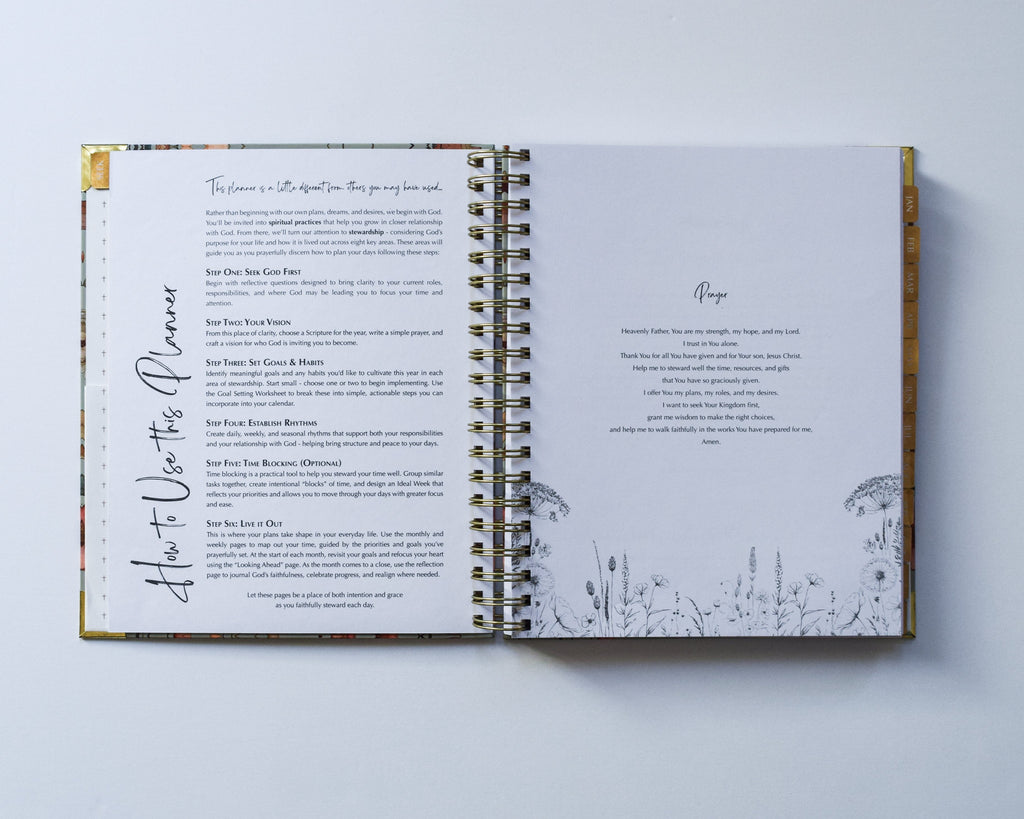 How to Use this Planner
This planner is a little different from others you may have used...
Rather than beginning with our own plans, dreams, and desires, we begin with God.
You'll be invited into spiritual practices that help you grow in closer relationship
with God. From there, we'll turn our attention to stewardship - considering God's
purpose for your life and how it is lived out across eight key areas. These areas will
guide you as you prayerfully discern how to plan your days following these steps:
Step One: Seek God First
Begin with reflective questions designed to bring clarity to your current roles,
responsibilities, and where God may be leading you to focus your time and
attention.
Step Two: Your Vision
From this place of clarity, choose a Scripture for the year, write a simple prayer, and
craft a vision for who God is inviting you to become.
Step Three: Set Goals & Habits
Identify meaningful goals and any habits you'd like to cultivate this year in each
area of stewardship. Start small - choose one or two to begin implementing. Use
the Goal Setting Worksheet to break these into simple, actionable steps you can
incorporate into your calendar.
Step Four: Establish Rhythms
Create daily, weekly, and seasonal rhythms that support both your responsibilities
and your relationship with God - helping bring structure and peace to your days.
Step Five: Time Blocking (Optional)
Time blocking is a practical tool to help you steward your time well. Group similar
tasks together, create intentional “blocks” of time, and design an Ideal Week that
reflects your priorities and allows you to move through your days with greater focus
and ease.
Step Six: Live it Out
This is where your plans take shape in your everyday life. Use the monthly and
weekly pages to map out your time, guided by the priorities and goals you've
prayerfully set. At the start of each month, revisit your goals and refocus your heart
using the “Looking Ahead” page. As the month comes to a close, use the reflection
page to journal God's faithfulness, celebrate progress, and realign where needed.
Let these pages be a place of both intention and grace
as you faithfully steward each day.
Prayer
Heavenly Father, You are my strength, my hope, and my Lord.
I trust in You alone.
Thank You for all You have given and for Your son, Jesus Christ.
Help me to steward well the time, resources, and gifts
that You have so graciously given.
I offer You my plans, my roles, and my desires.
I want to seek Your Kingdom first,
grant me wisdom to make the right choices,
and help me to walk faithfully in the works You have prepared for me,
Amen.
JAN
FEB
MAR
APR
JUN
JUL